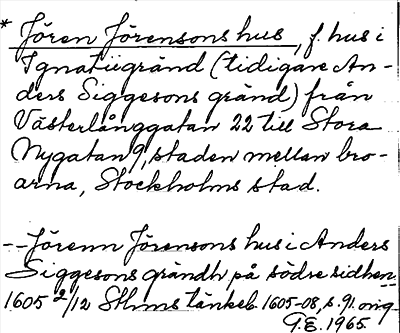 * Jören Jörensons hus, f. hus i
Ignatiigränd (tidigare An-
ders Siggesons gränd) från
Västerlånggatan 22 till Stora
Nygatan 9, staden mellan bro-
arna, Stockholms stad.
--Jörenn Jörensons hus i Anders
Siggesons grändh, på södre sidhen.
1605 2/12 Sthms tänkeb. 1605-08, s. 91. orig.
G.E. 1965.